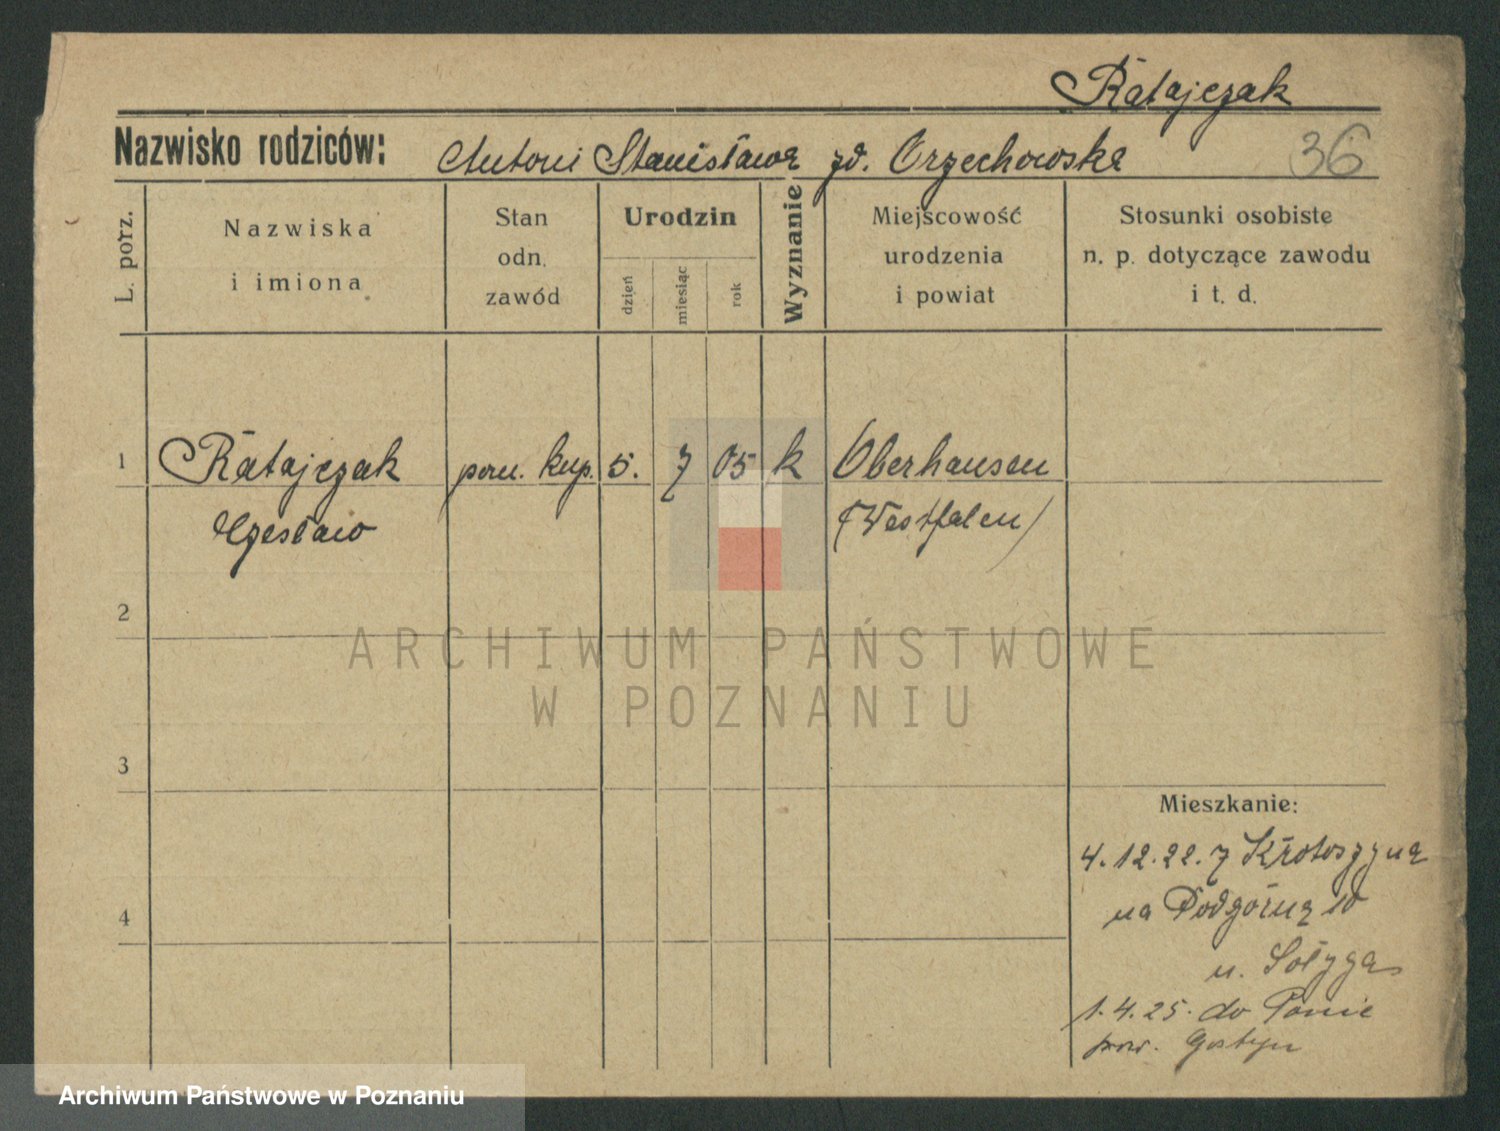 Ratajczak
Nazwisko rodziców: Antoni Stanisława zd. Orzechowska 36
L. porz.
Nazwiska
i imiona
Stan
odn.
zawód
Urodzin
dzień
miesiąc
rok
Wyznanie
Miejscowość
urodzenia
i powiat
Stosunki osobiste
n. p. dotyczące zawodu
i t. d.
1 Ratajczak pom. kup. 5. 7 05 k Oberhausen
Czesław (Westfalen)
2
ARCHIWUM PAŃSTWOWE
W POZNANIU
3
Mieszkanie:
4. 12. 22. z Krotoszyna
4 na Podgórną 10
u. Sołyga
1. 4. 25. do Ponie
pow. Gostyn
Archiwum Państwowe w Poznaniu